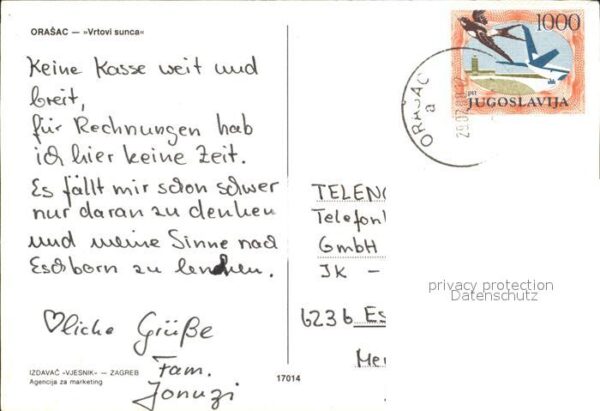 ORAŠAC — »Vrtovi sunca«
Keine Kasse weit und
breit,
für Rechnungen hab
ich hier keine Zeit.
Es fällt mir schon schwer
nur daran zu denken
und meine Sinne nach
Eschborn zu lenken.
♡liche Grüße
Fam.
Jonuzi
IZDAVAČ »VJESNIK« — ZAGREB
Agencija za marketing
17014
1000
ptt
JUGOSLAVIJA
ORAŠAC
a
29.07.88
TELENO
Telefon
GmbH
JK -
6236 Es
privacy protection
Datenschutz